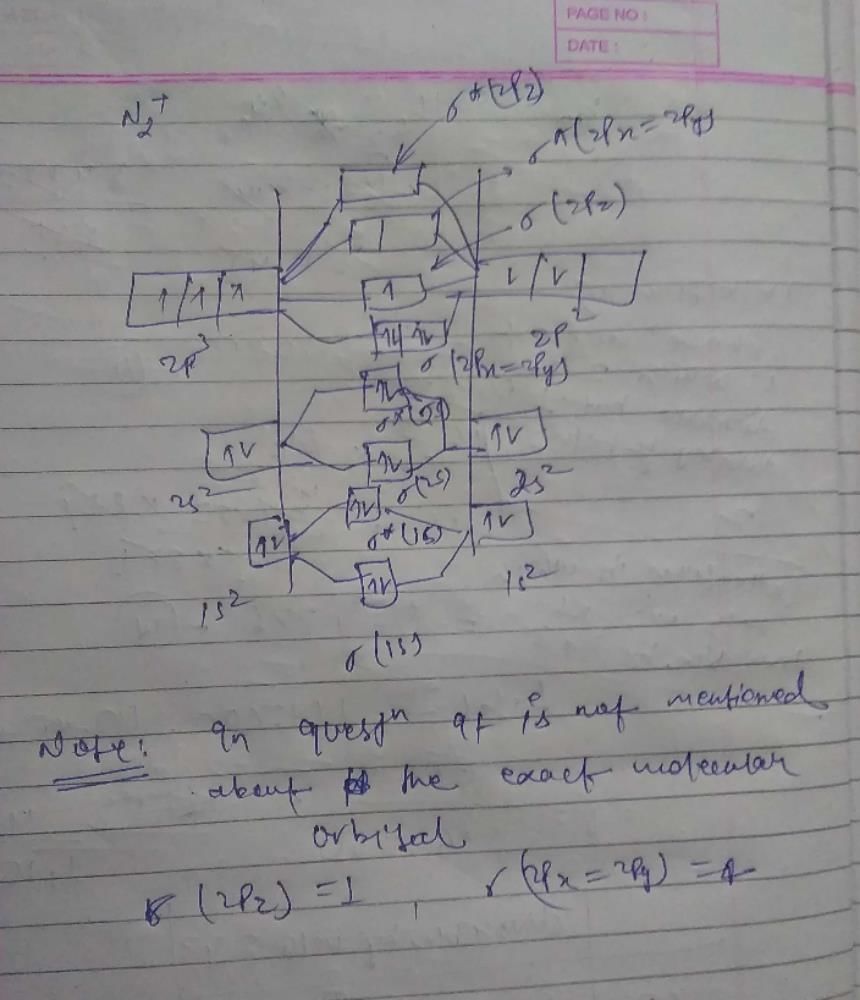 PAGE NO :
DATE :
N₂⁺
σ*(2Pz)
σ*(2Px = 2Py)
σ(2Pz)
1 1 1
1
1 1
2P³
1↓ 1↓
2P²
σ(2Px = 2Py)
1↓
σ*(2s)
1↓
1↓
1↓
2s²
σ(2s)
2s²
1↓
1↓
1↓
σ*(1s)
1↓
1s²
1s²
σ(1s)
Note: In quesⁿ it is not mentioned
about the exact molecular
orbital
σ(2Pz) = 1 , σ(2Px = 2Py) = 4